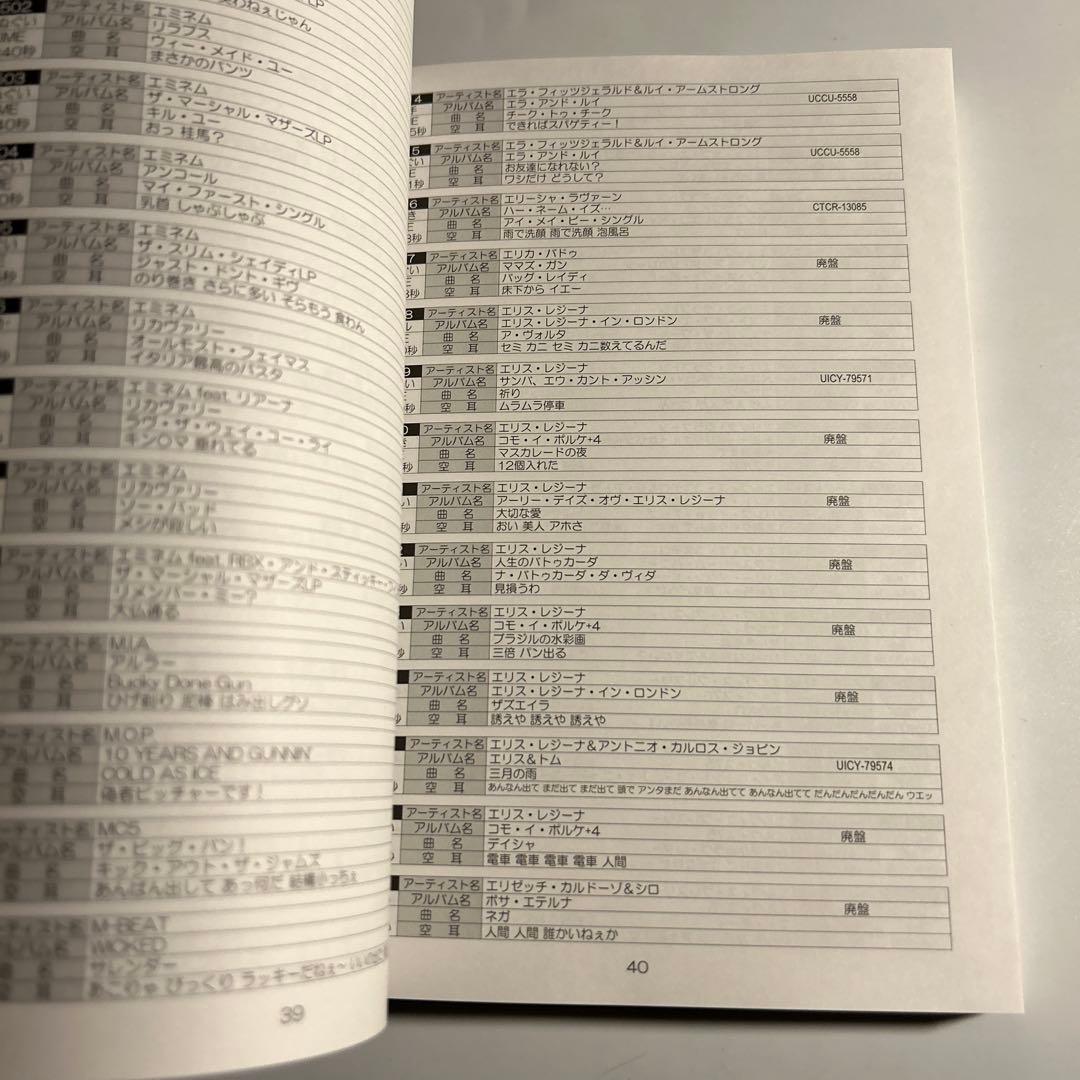 502
アーティスト名 エミネム
アルバム名 リラプス
曲 名 ウィー・メイド・ユー
40秒 空 耳 まさかのパンツ
503
アーティスト名 エミネム
アルバム名 ザ・マーシャル・マザーズLP
曲 名 キル・ユー
40秒 空 耳 おっ 桂馬?
04
アーティスト名 エミネム
アルバム名 アンコール
曲 名 マイ・ファースト・シングル
空 耳 乳首 しゃぶしゃぶ
アーティスト名 エミネム
アルバム名 ザ・スリム・シェイディLP
曲 名 ジャスト・ドント・ギヴ
空 耳 のり巻き さらに多い そらもう 食わん
アーティスト名 エミネム
アルバム名 リカヴァリー
曲 名 オールモスト・フェイマス
空 耳 イタリア最高のパスタ
アーティスト名 エミネム feat. リアーナ
アルバム名 リカヴァリー
曲 名 ラヴ・ザ・ウェイ・ユー・ライ
空 耳 キン○マ 垂れてる
アーティスト名 エミネム
アルバム名 リカヴァリー
曲 名
空 耳 メシが欲しい
アーティスト名 エミネム feat. RBX・アンド・スティッキー・フィ
アルバム名 ザ・マーシャル・マザーズLP
曲 名 リメンバー・ミー?
空 耳 大仏通る
アーティスト名 M.I.A
アルバム名 アルラー
曲 名 Bucky Done Gun
空 耳 ひげ剃り 泥棒 はみ出しグソ
アーティスト名 M.O.P.
アルバム名 10 YEARS AND GUNNIN'
曲 名 COLD AS ICE
空 耳 偽者ピッチャーです!
アーティスト名 MC5
アルバム名 ザ・ビッグ・バン!
曲 名 キック・アウト・ザ・ジャムズ
空 耳 あんぱん出して あっ何だ 結構小っちぇ
アーティスト名 M-BEAT
アルバム名 WICKED
曲 名 サレンダー
空 耳 あこりゃ びっくり ラッキーだねぇ~
39
4 アーティスト名 エラ・フィッツジェラルド&ルイ・アームストロング
アルバム名 エラ・アンド・ルイ UCCU-5558
曲 名 チーク・トゥ・チーク
5秒 空 耳 できればスパゲティー!
5 アーティスト名 エラ・フィッツジェラルド&ルイ・アームストロング
アルバム名 エラ・アンド・ルイ UCCU-5558
曲 名 お友達になれない?
1秒 空 耳 ワシだけ どうして?
6 アーティスト名 エリーシャ・ラヴァーン
アルバム名 ハー・ネーム・イズ… CTCR-13085
曲 名 アイ・メイ・ビー・シングル
3秒 空 耳 雨で洗顔 雨で洗顔 泡風呂
7 アーティスト名 エリカ・バドゥ
アルバム名 ママズ・ガン 廃盤
曲 名 バッグ・レイディ
3秒 空 耳 床下から イエー
8 アーティスト名 エリス・レジーナ
アルバム名 エリス・レジーナ・イン・ロンドン 廃盤
曲 名 ア・ヴォルタ
0秒 空 耳 セミ カニ セミ カニ数えてるんだ
9 アーティスト名 エリス・レジーナ
アルバム名 サンバ、エウ・カント・アッシン UICY-79571
曲 名 祈り
秒 空 耳 ムラムラ停車
0 アーティスト名 エリス・レジーナ
アルバム名 コモ・イ・ポルケ+4 廃盤
曲 名 マスカレードの夜
秒 空 耳 12個入れた
アーティスト名 エリス・レジーナ
アルバム名 アーリー・デイズ・オヴ・エリス・レジーナ 廃盤
曲 名 大切な愛
秒 空 耳 おい 美人 アホさ
2 アーティスト名 エリス・レジーナ
アルバム名 人生のバトゥカーダ 廃盤
曲 名 ナ・バトゥカーダ・ダ・ヴィダ
秒 空 耳 見損うわ
アーティスト名 エリス・レジーナ
アルバム名 コモ・イ・ポルケ+4 廃盤
曲 名 ブラジルの水彩画
空 耳 三倍 パン出る
アーティスト名 エリス・レジーナ
アルバム名 エリス・レジーナ・イン・ロンドン 廃盤
曲 名 ザズエイラ
空 耳 誘えや 誘えや 誘えや
アーティスト名 エリス・レジーナ&アントニオ・カルロス・ジョビン
アルバム名 エリス&トム UICY-79574
曲 名 三月の雨
空 耳 あんなん出て まだ出て まだ出て 頭で アンタまだ あんなん出てて あんなん出てて だんだんだんだんだん ウエッ
アーティスト名 エリス・レジーナ
アルバム名 コモ・イ・ポルケ+4 廃盤
曲 名 デイシャ
空 耳 電車 電車 電車 電車 人間
アーティスト名 エリゼッチ・カルドーゾ&シロ
アルバム名 ボサ・エテルナ 廃盤
曲 名 ネガ
空 耳 人間 人間 誰かいねぇか
40